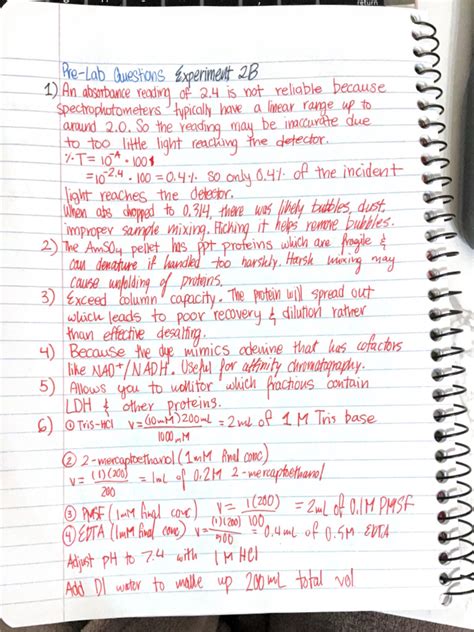 return
Pre-Lab Questions Experiment 2B
1) An absorbance reading of 2.4 is not reliable because
spectrophotometers typically have a linear range up to
around 2.0. So the reading may be inaccurate due
to too little light reaching the detector.
%T = 10^-A · 100%
= 10^-2.4 · 100 = 0.4%. so only 0.4% of the incident
light reaches the detector.
When abs dropped to 0.314, there was likely bubbles, dust,
improper sample mixing. Flicking it helps remove bubbles.
2) The AmSO4 pellet has ppt proteins which are fragile &
can denature if handled too harshly. Harsh mixing may
cause unfolding of proteins.
3) Exceed column capacity. The protein will spread out
which leads to poor recovery & dilution rather
than effective desalting.
4) Because the dye mimics adenine that has cofactors
like NAD+/NADH. Useful for affinity chromatography.
5) Allows you to monitor which fractions contain
LDH & other proteins.
6) ① Tris-HCl V = (10mM)200mL / 1000mM = 2mL of 1M Tris base
② 2-mercaptoethanol (1mM final conc)
V = (1)(200) / 200 = 1mL of 0.2M 2-mercaptoethanol
③ PMSF (1mM final conc) V = 1(200) / 100 = 2mL of 0.1M PMSF
④ EDTA (1mM final conc) V = (1)(200) / 500 = 0.4mL of 0.5M EDTA
Adjust pH to 7.4 with 1M HCl
Add DI water to make up 200mL total vol